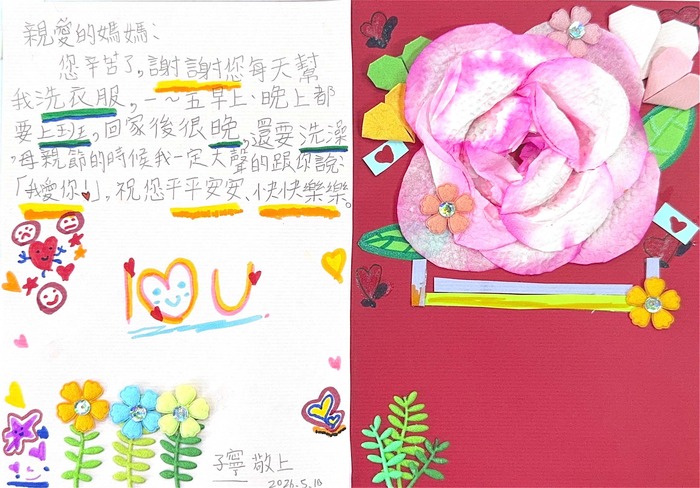 親愛的媽媽:
您辛苦了,謝謝您每天幫
我洗衣服,一~五早上、晚上都
要上班,回家後很晚,還要洗澡
,母親節的時候我一定大聲的跟你說:
「我愛你!」,祝您平平安安、快快樂樂。
I U
子寧 敬上
2026.5.10